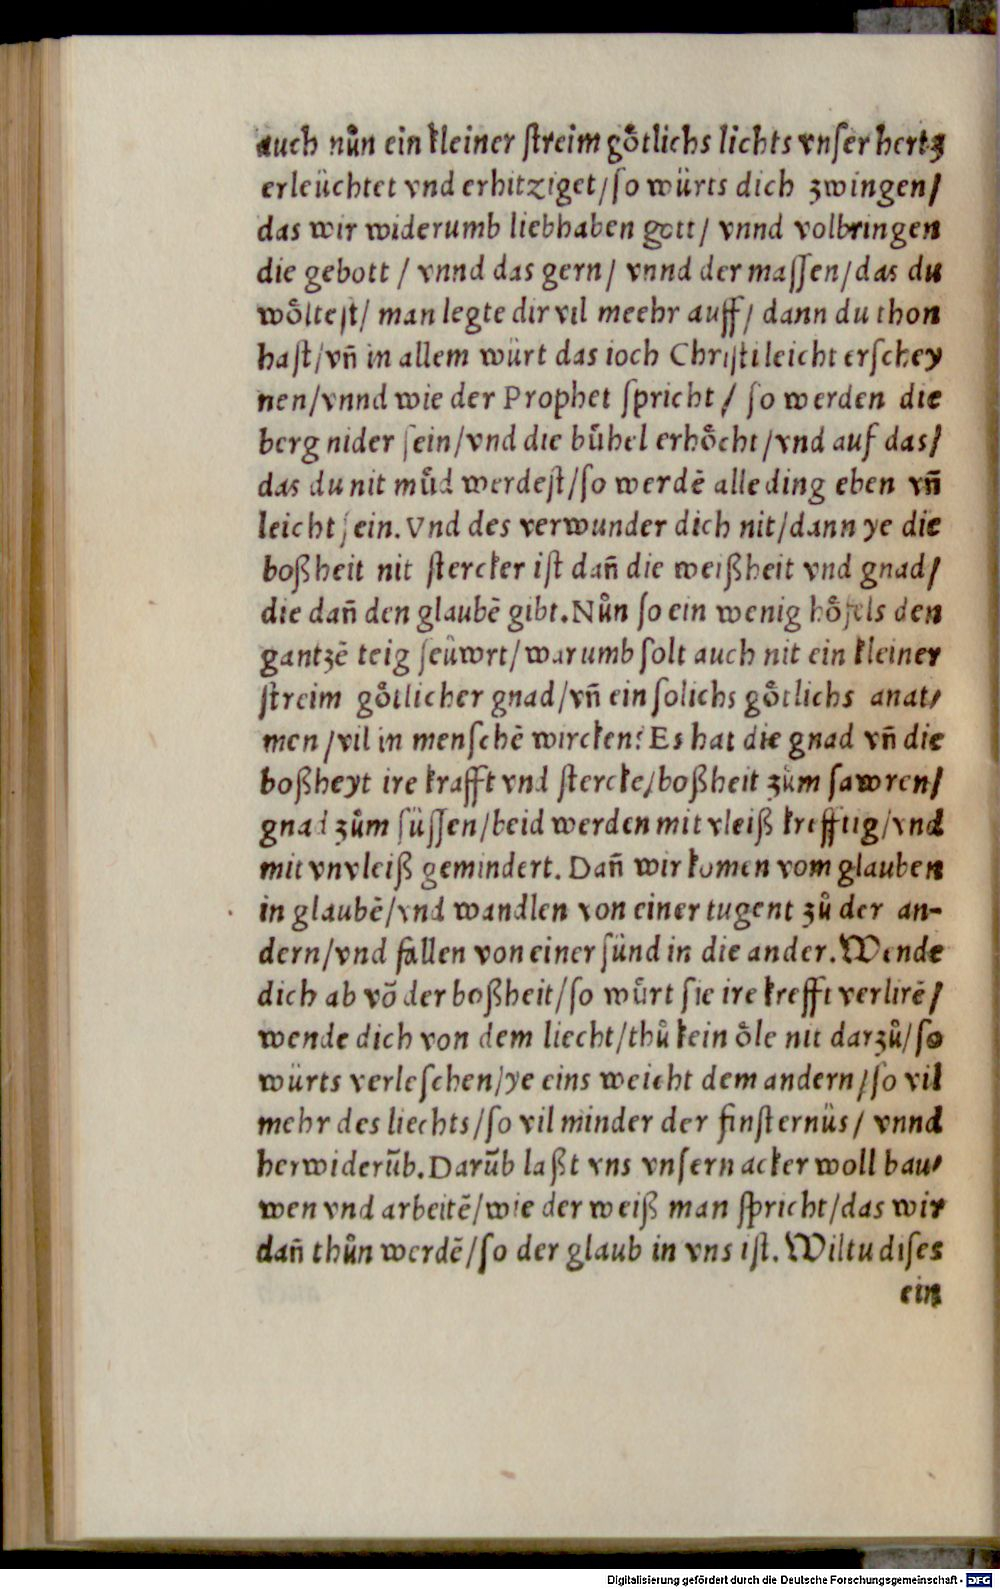 auch nůn ein kleiner ſtreim gőtlichs lichts vnſer hertz
erleüchtet vnd erhitziget/ſo würts dich zwingen/
das wir widerumb liebhaben gott/ vnnd volbringen
die gebott / vnnd das gern/ vnnd der maſſen/das du
woͤlteſt/ man legte dir vil meehr auff/ dann du thon
haſt/vñ in allem würt das ioch Chriſti leicht erſchey
nen/vnnd wie der Prophet ſpricht / ſo werden die
berg nider ſein/vnd die bühel erhoͤcht/vnd auf das/
das du nit müd werdeſt/ſo werdē alle ding eben vñ
leicht ſein. Vnd des verwunder dich nit/dann ye die
boßheit nit ſtercker iſt dañ die weißheit vnd gnad/
die dañ den glaubē gibt. Nůn ſo ein wenig hoͤfels den
gantzē teig ſeüwrt/warumb ſolt auch nit ein kleiner
ſtreim goͤtlicher gnad/vñ ein ſolichs goͤtlichs anat⸗
men/vil in menſchē wircken? Es hat die gnad vñ die
boßheyt ire krafft vnd ſtercke/boßheit zům ſawren/
gnad zům ſüſſen/beid werden mit vleiß krefftig/vnd
mit vnvleiß gemindert. Dañ wir komen vom glauben
in glaubē/vnd wandlen von einer tugent zů der an-
dern/vnd fallen von einer ſünd in die ander. Wende
dich ab vō der boßheit/ſo würt ſie ire krefft verlirē/
wende dich von dem liecht/thů kein oͤle nit darzů/ſo
würts verleſchen/ye eins weicht dem andern/ſo vil
mehr des liechts/ſo vil minder der finſternüs/ vnnd
herwiderūb. Darūb laßt vns vnſern acker woll bau⸗
wen vnd arbeitē/wie der weiß man ſpricht/das wir
dañ thůn werdē/ſo der glaub in vns iſt. Wiltu diſes
ein
Digitalisierung gefördert durch die Deutsche Forschungsgemeinschaft - DFG